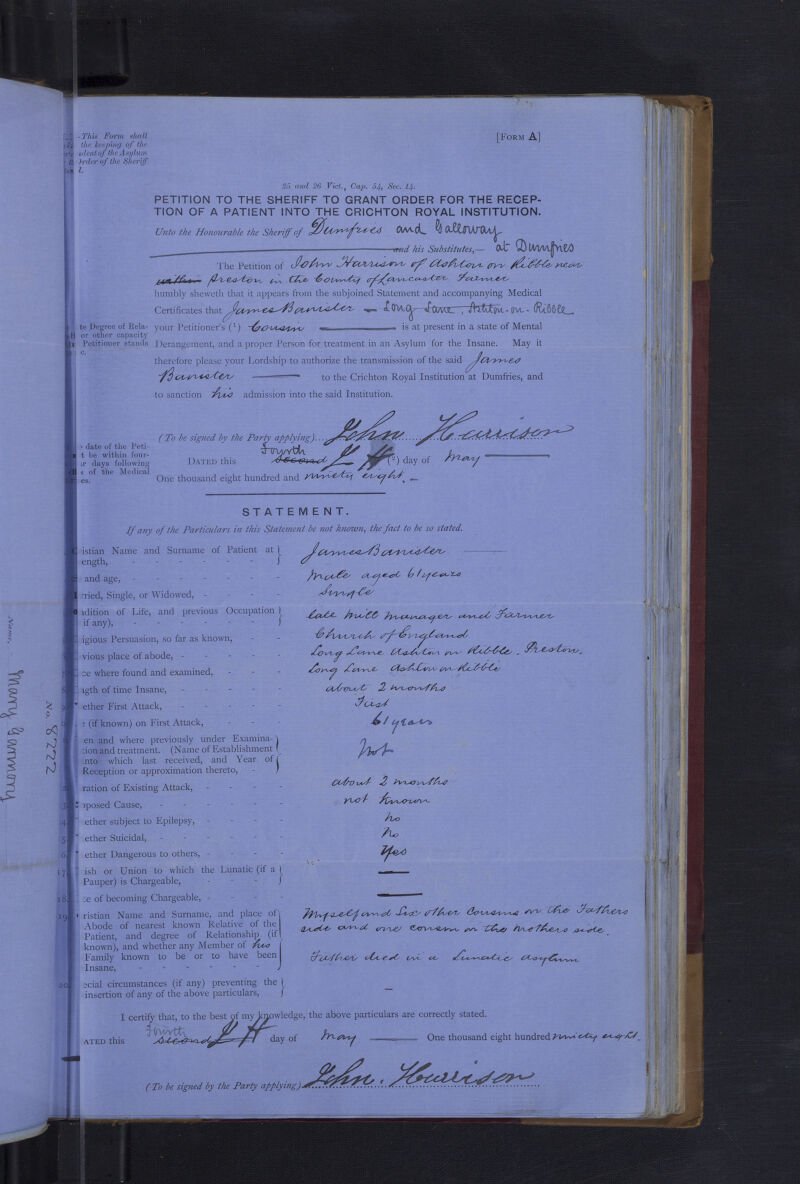 This Form shall
the keeping of the
Asylum
Order of the Sheriff
[FORM A]
25 and 26 Vict., Cap. 54, Sec. 14.
PETITION TO THE SHERIFF TO GRANT ORDER FOR THE RECEP-
TION OF A PATIENT INTO THE CRICHTON ROYAL INSTITUTION.
Unto the Honourable the Sheriff of Dumfries and Galloway
and his Substitutes,— at Dumfries
The Petition of John Harrison of Ashton on Ribble near
within Preston in the County of Lancaster Farmer
humbly sheweth that it appears from the subjoined Statement and accompanying Medical
Certificates that James Banister — Long Lane, Ashton-on-Ribble
te Degree of Rela-
or other capacity
Petitioner stands
your Petitioner's (1) Cousin — is at present in a state of Mental
Derangement, and a proper Person for treatment in an Asylum for the Insane. May it
therefore please your Lordship to authorize the transmission of the said James
Banister — to the Crichton Royal Institution at Dumfries, and
to sanction his admission into the said Institution.
date of the Peti-
t be within four-
days following
of the Medical
es.
(To be signed by the Party applying) John Harrison
Fourth
DATED this Second J H (2) day of May —
One thousand eight hundred and ninety eight. —
STATEMENT.
If any of the Particulars in this Statement be not known, the fact to be so stated.
istian Name and Surname of Patient at
ength, James Banister
and age, Male aged 61 years
rried, Single, or Widowed, Single
ndition of Life, and previous Occupation
if any), late Mill Manager and Farmer
igious Persuasion, so far as known, Church of England
vious place of abode, Long Lane Ashton on Ribble. Preston.
ce where found and examined, Long Lane Ashton on Ribble
ngth of time Insane, about 2 months
ether First Attack, First
(if known) on First Attack, 61 years
en and where previously under Examina-
tion and treatment. (Name of Establishment
nto which last received, and Year of
Reception or approximation thereto, Not
ration of Existing Attack, about 2 months
pposed Cause, not known
ether subject to Epilepsy, no
ether Suicidal, No
ether Dangerous to others, Yes
17. ish or Union to which the Lunatic (if a
Pauper) is Chargeable, —
18. ce of becoming Chargeable, —
19. ristian Name and Surname, and place of
Abode of nearest known Relative of the
Patient, and degree of Relationship (if
known), and whether any Member of his
Family known to be or to have been
Insane,
Myself and Six other Cousins on the Fathers
side and one cousin on the Mothers side.
Father died in a Lunatic asylum
20. ecial circumstances (if any) preventing the
insertion of any of the above particulars, —
I certify that, to the best of my knowledge, the above particulars are correctly stated.
Fourth
ATED this Second J H day of May — One thousand eight hundred ninety eight.
(To be signed by the Party applying) John. Harrison
No. 8222
Name,